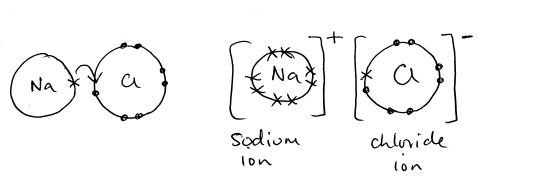 Na Cl
[Na]⁺ [Cl]⁻
sodium
ion
chloride
ion